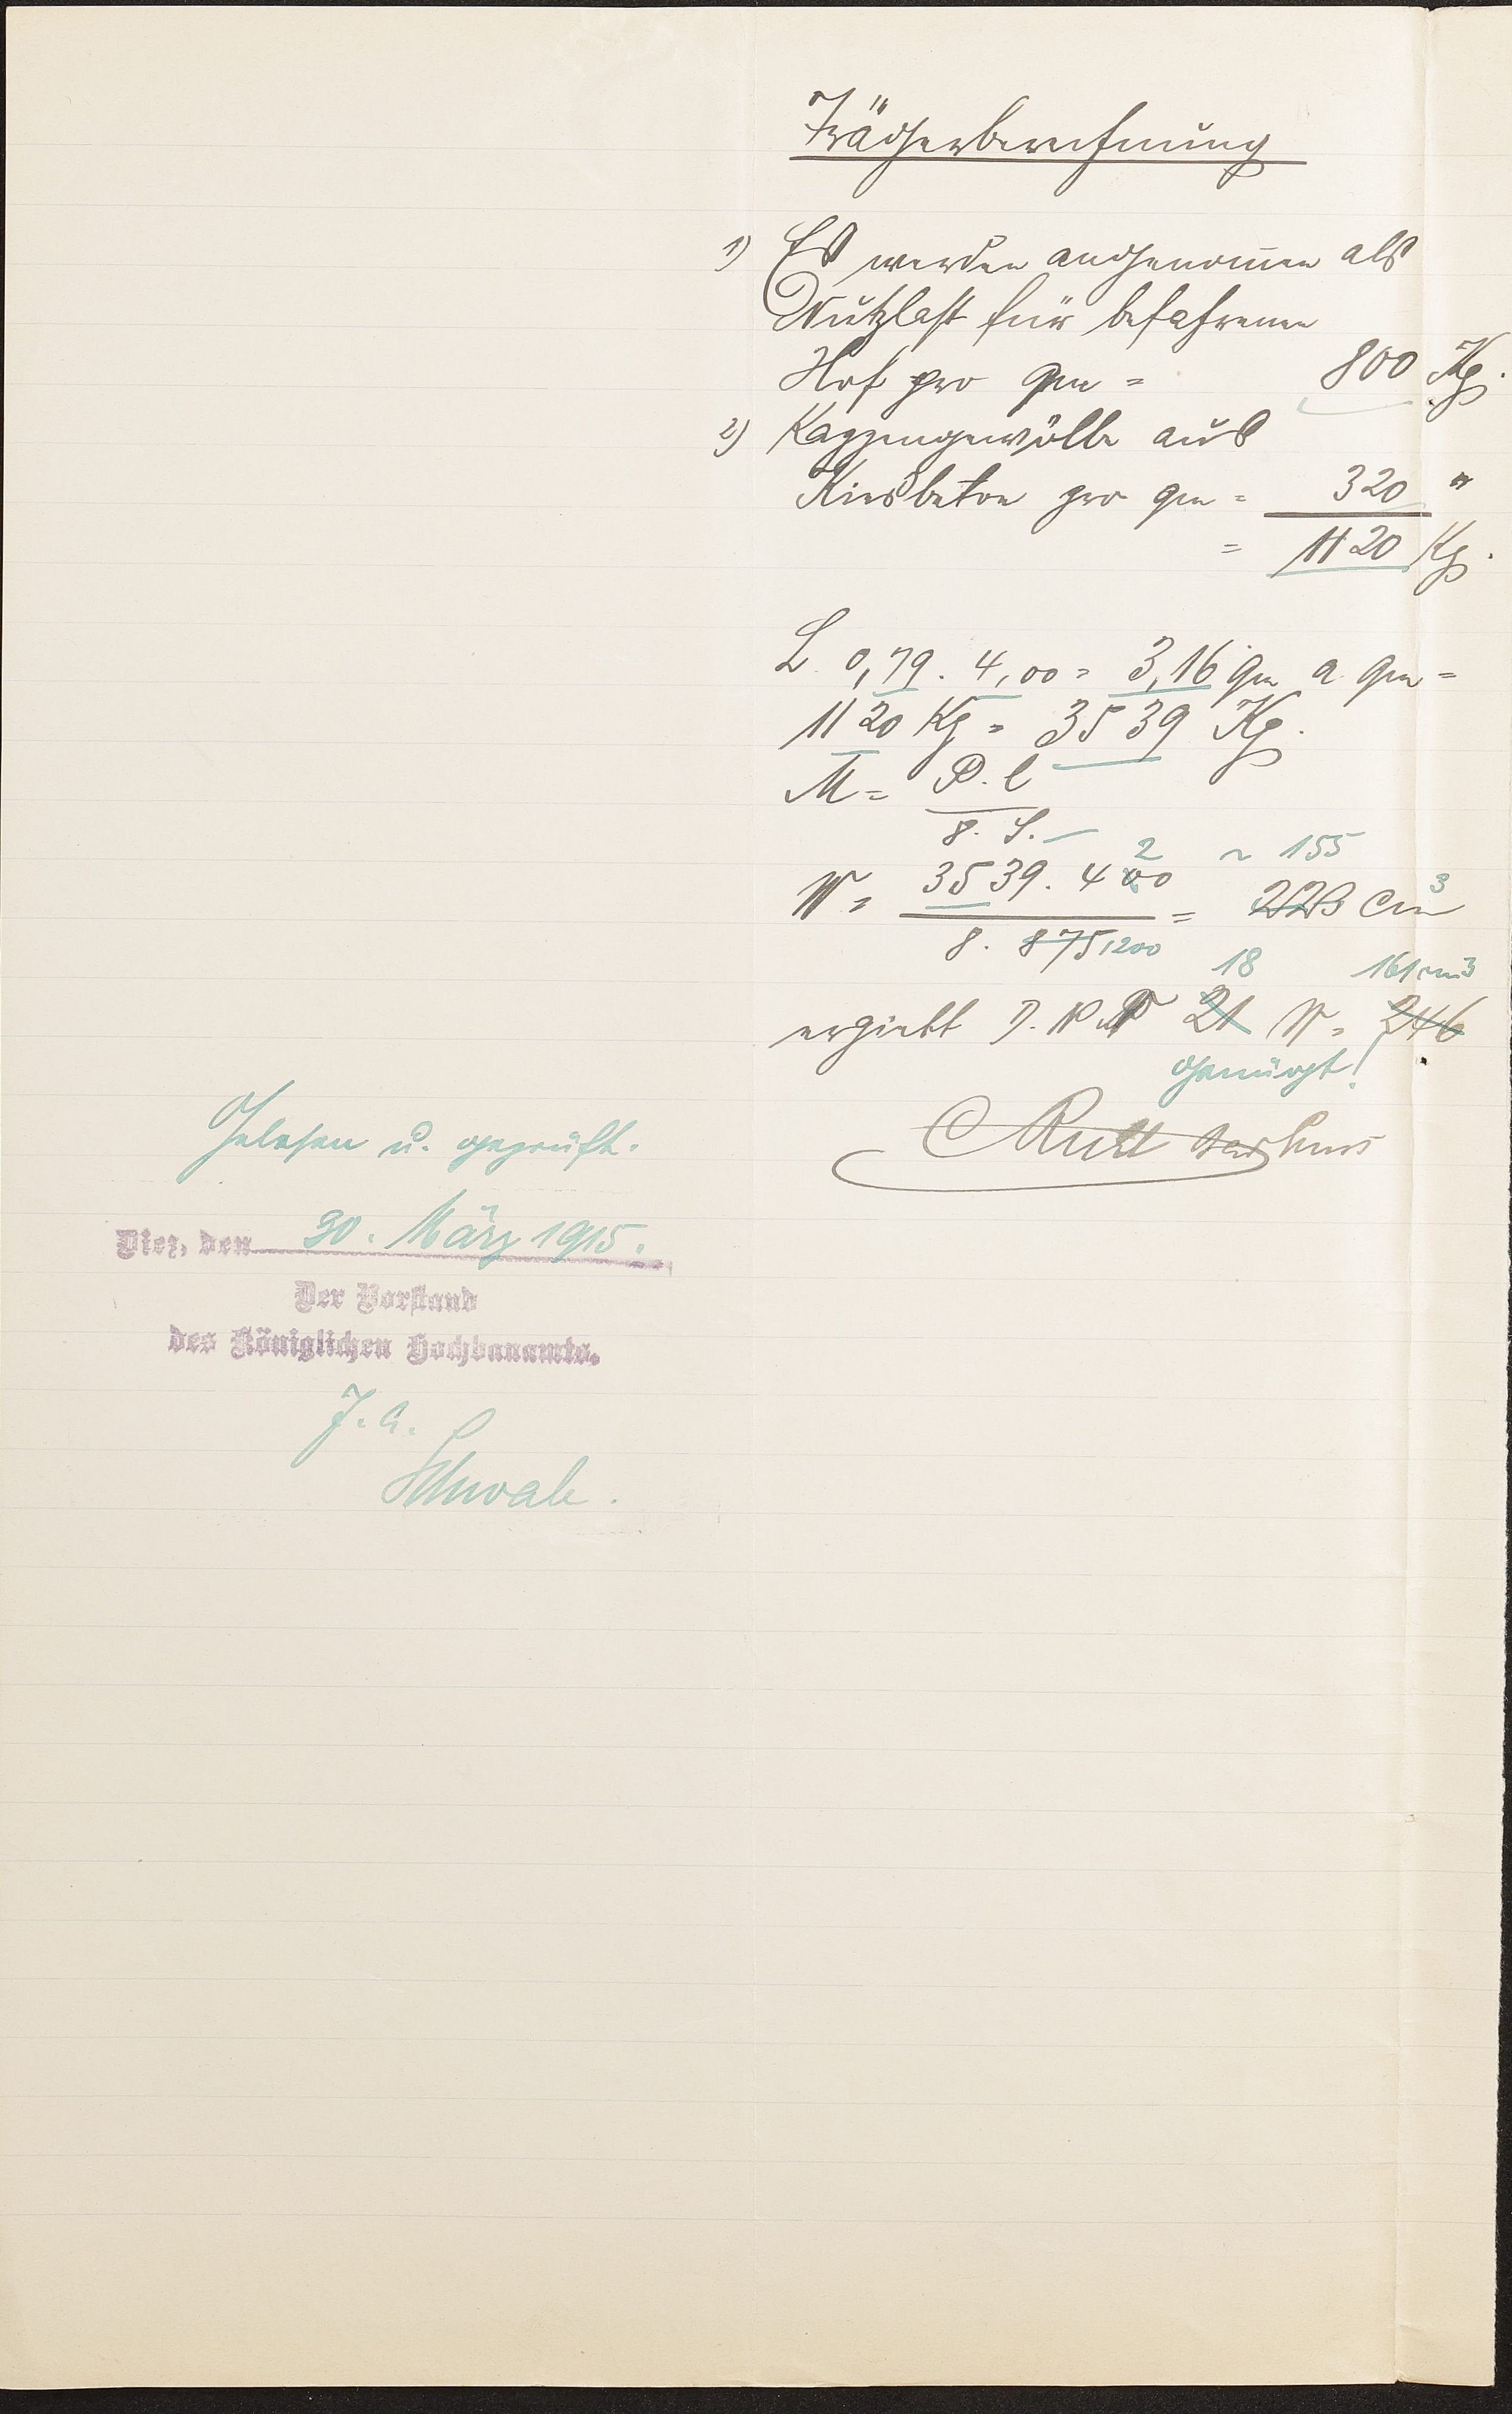 Trägerberechnung
1) Es werden angenommen als
Nutzlast für befahrenen
Hof pro qm = 800 Kg.
2) Kappengewölbe aus
Kiesbeton pro qm = 320 "
= 1120 Kg.
L 0,79 . 4,00 = 3,16 qm a qm =
1120 Kg = 3539 Kg.
M = P. l
8. S.
2 ~ 155
W = 3539. 400 = 223 cm3
8. 875 1200
18 161 cm3
ergiebt D. N. P 21 W = 246
genügt!
C Rutt
Gelesen u. geprüft.
Diez, den 30. März 1915.
Der Vorstand
des Königlichen Hochbauamts.
J. A.
Schwale.